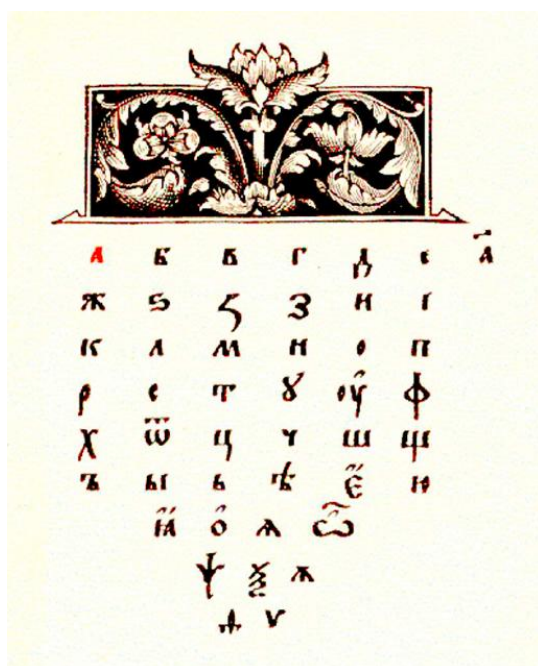 а б в г д є а҃
ж ѕ ꙁ з и ї
к л м н о п
р с т ꙋ оу҆ ф
х ѿ ц ч ш щ
ъ ы ь ѣ є҆ ю
ꙗ҆ о҆ ѧ ѽ
ѱ ѯ ѫ
ѳ ѵ